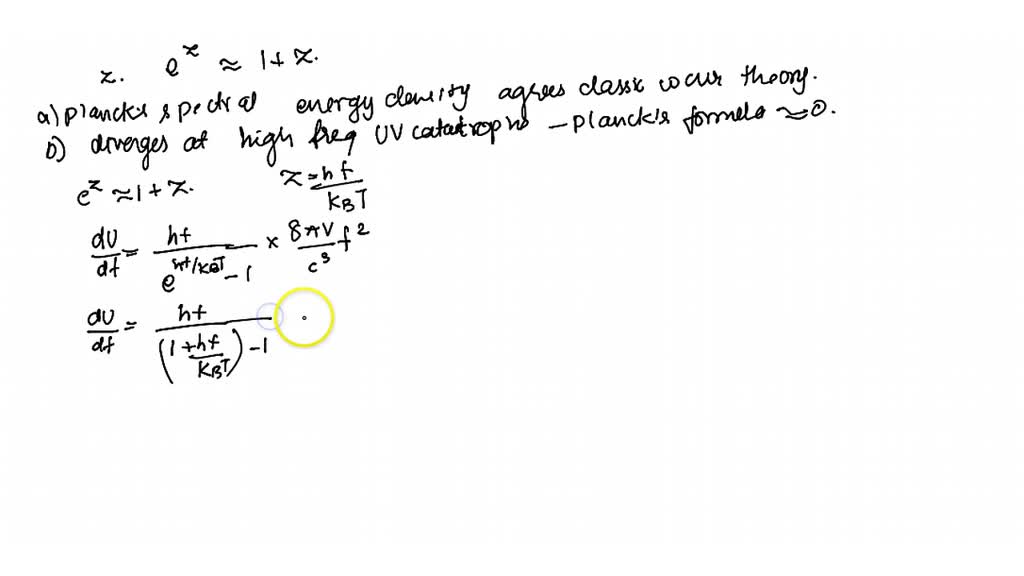 z. e^z ≈ 1+z.
a) Planck's spectral energy density agrees classic theory.
b) diverges at high freq UV catastrophe – Planck's formula ≈0.
e^z ≈ 1+z. z = hf/K_BT
dU/df = hf/(e^{hf/K_BT} – 1) × 8πV/c^3 f^2
dU/df = hf/((1 + hf/K_BT) – 1)